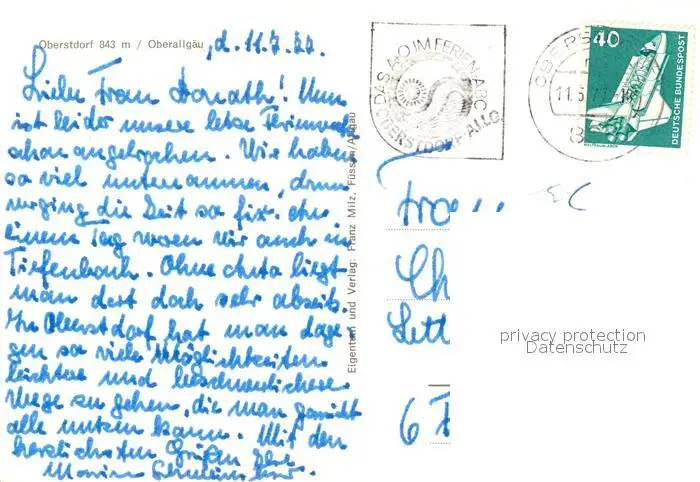 Oberstdorf 843 m / Oberallgäu
, d. 11.7.77.
Liebe Frau Donath! Nun
ist leider unsere letzte Ferienwoche
schon angebrochen. Wir haben
so viel unternommen, drum
verging die Zeit so fix. An
einem Tag waren wir auch in
Tiefenbach. Ohne Auto liegt
man dort doch sehr abseits.
In Oberstdorf hat man dage-
gen so viele Möglichkeiten
leichte und beschwerlichere
Wege zu gehen, die man garnicht
alle nutzen kann. Mit den
herzlichsten Grüßen Ihre
Eigentum und Verlag: Franz Milz, Füssen/Allgäu
DAS A-O IM FERIEN-ABC
OBERSTDORF-ALLG.
OBERS
11.
40
DEUTSCHE BUNDESPOST
WELTRAUMLABOR
Frau
Ch
Lett
6 F
privacy protection
Datenschutz